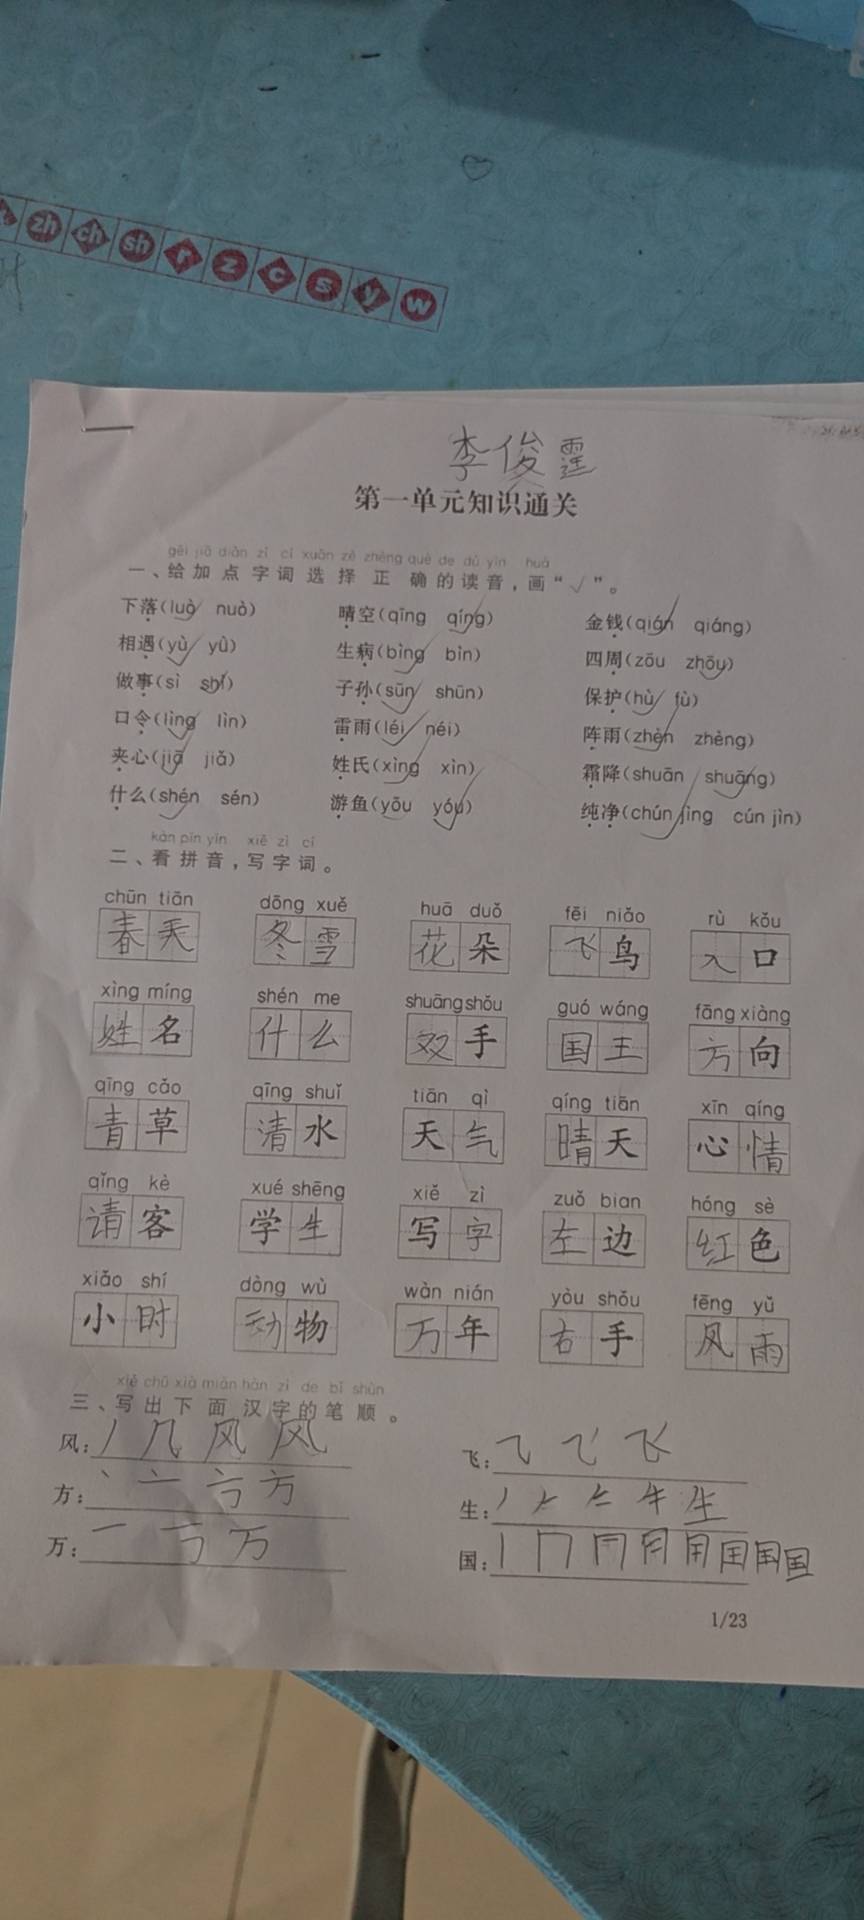 zh ch sh r z c s y w
李俊霆
第一单元知识通关
gěi jiā diǎn zì cí xuǎn zé zhèng què de dú yīn huà
一、给加点字词选择正确的读音，画“√”。
下落(luò nuò) 晴空(qīng qíng) 金钱(qián qiáng)
相遇(yù yǜ) 生病(bìng bìn) 四周(zōu zhōu)
做事(sì shì) 子孙(sūn shūn) 保护(hù fù)
口令(lìng lìn) 雷雨(léi néi) 阵雨(zhèn zhèng)
夹心(jiā jiǎ) 姓氏(xìng xìn) 霜降(shuān shuāng)
什么(shén sén) 游鱼(yōu yóu) 纯净(chún jìng cún jìn)
kàn pīn yīn xiě zì cí
二、看拼音，写字词。
chūn tiān dōng xuě huā duǒ fēi niǎo rù kǒu
春天 冬雪 花朵 飞鸟 入口
xìng míng shén me shuāng shǒu guó wáng fāng xiàng
姓名 什么 双手 国王 方向
qīng cǎo qīng shuǐ tiān qì qíng tiān xīn qíng
青草 清水 天气 晴天 心情
qǐng kè xué shēng xiě zì zuǒ bian hóng sè
请客 学生 写字 左边 红色
xiǎo shí dòng wù wàn nián yòu shǒu fēng yǔ
小时 动物 万年 右手 风雨
xiě chū xià miàn hàn zì de bǐ shùn
三、写出下面汉字的笔顺。
风：丿 几 风 风 飞：乁 飞 飞
方：丶 亠 方 方 生：丿 𠂉 牛 生
万：一 丂 万 国：丨 冂 国
1/23